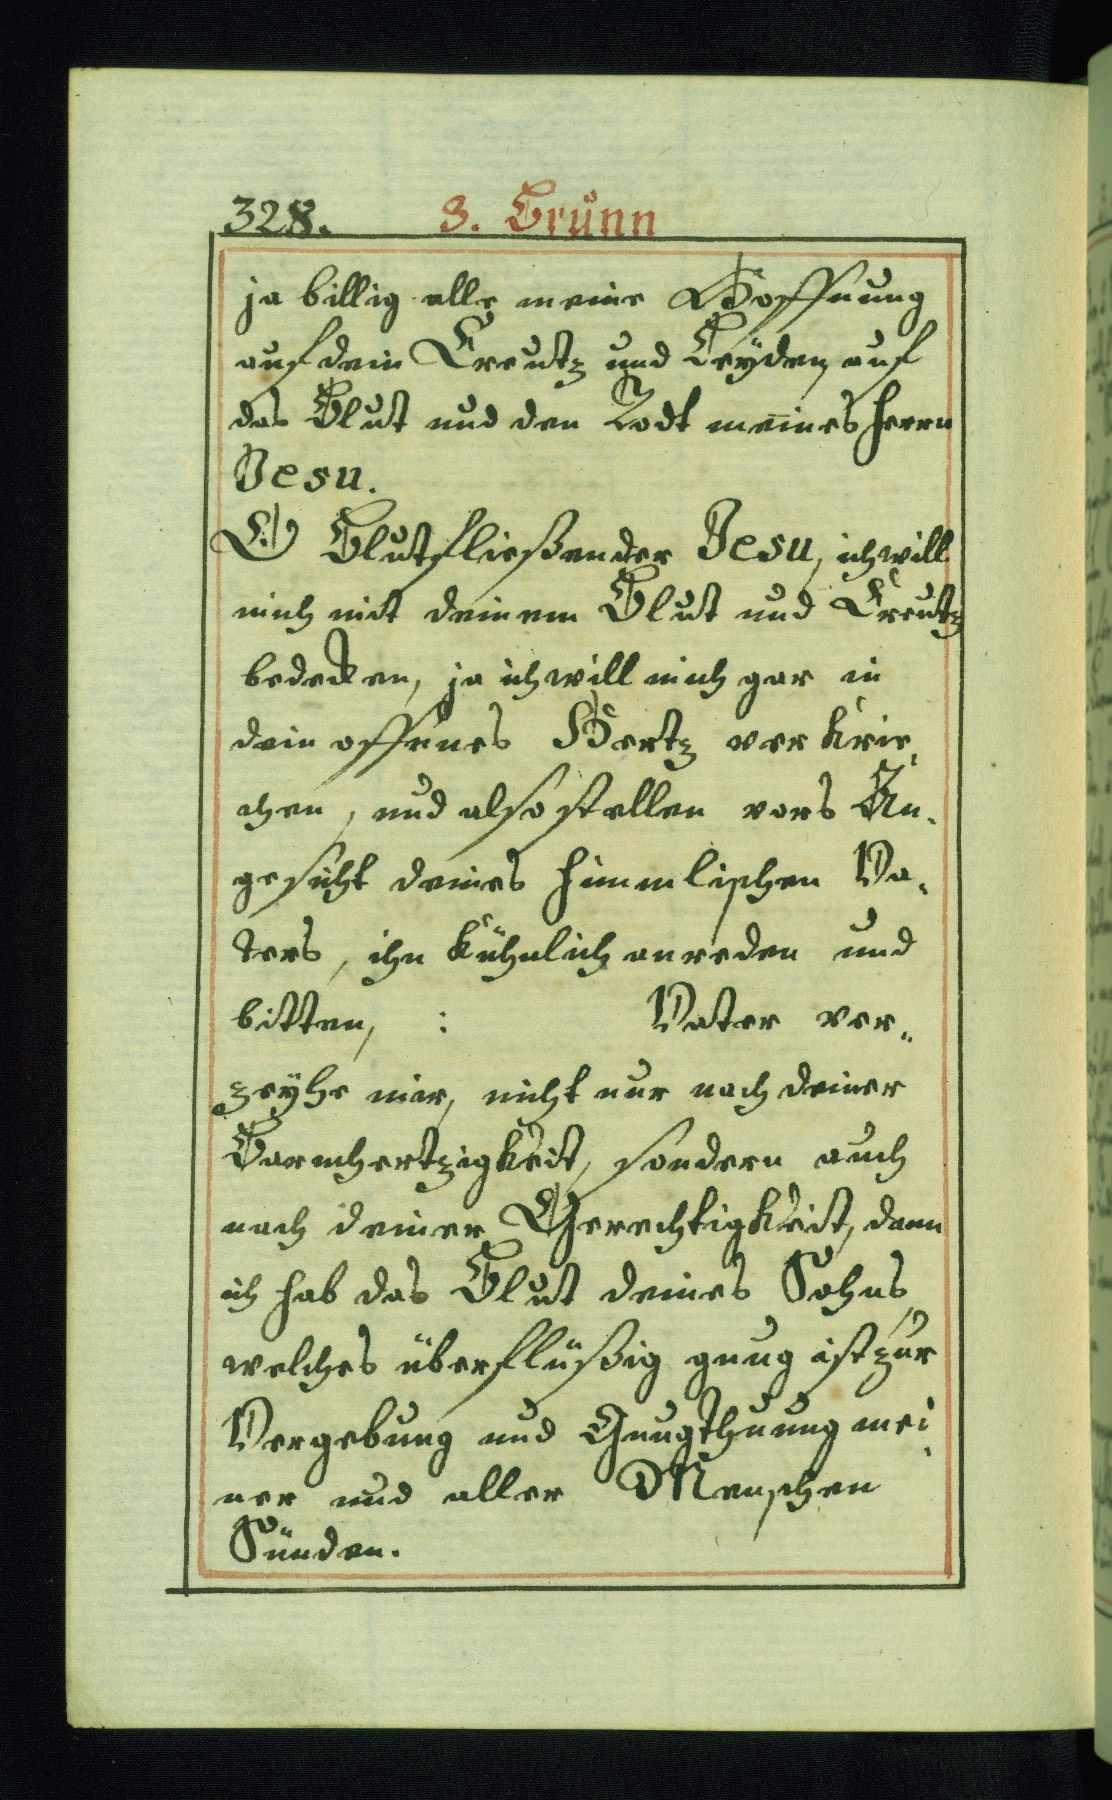 328. 3. Brünn
ja billig alle meine Hoffnung
auf dein Creutz und Leÿden, auf
das Blut und den Todt meines Herrn
Jesu.
O Blutfließender Jesu, ich will
mich mit deinem Blut und Creutz
bedecken, ja ich will mich gar in
dein offenes Hertz verkrie„
chen, und also stellen vors An„
gesicht deines himmlischen Va„
ters, ihn kühnlich anreden und
bitten, : Vater ver„
zeÿhe mir, nicht nur nach deiner
Barmhertzigkeit, sondern auch
nach deiner Gerechtigkeit, dann
ich hab das Blut deines Sohns,
welches überflüßig gnug ist zur
Vergebung und Gnugthuung mei„
ner und aller Menschen
Sünden.